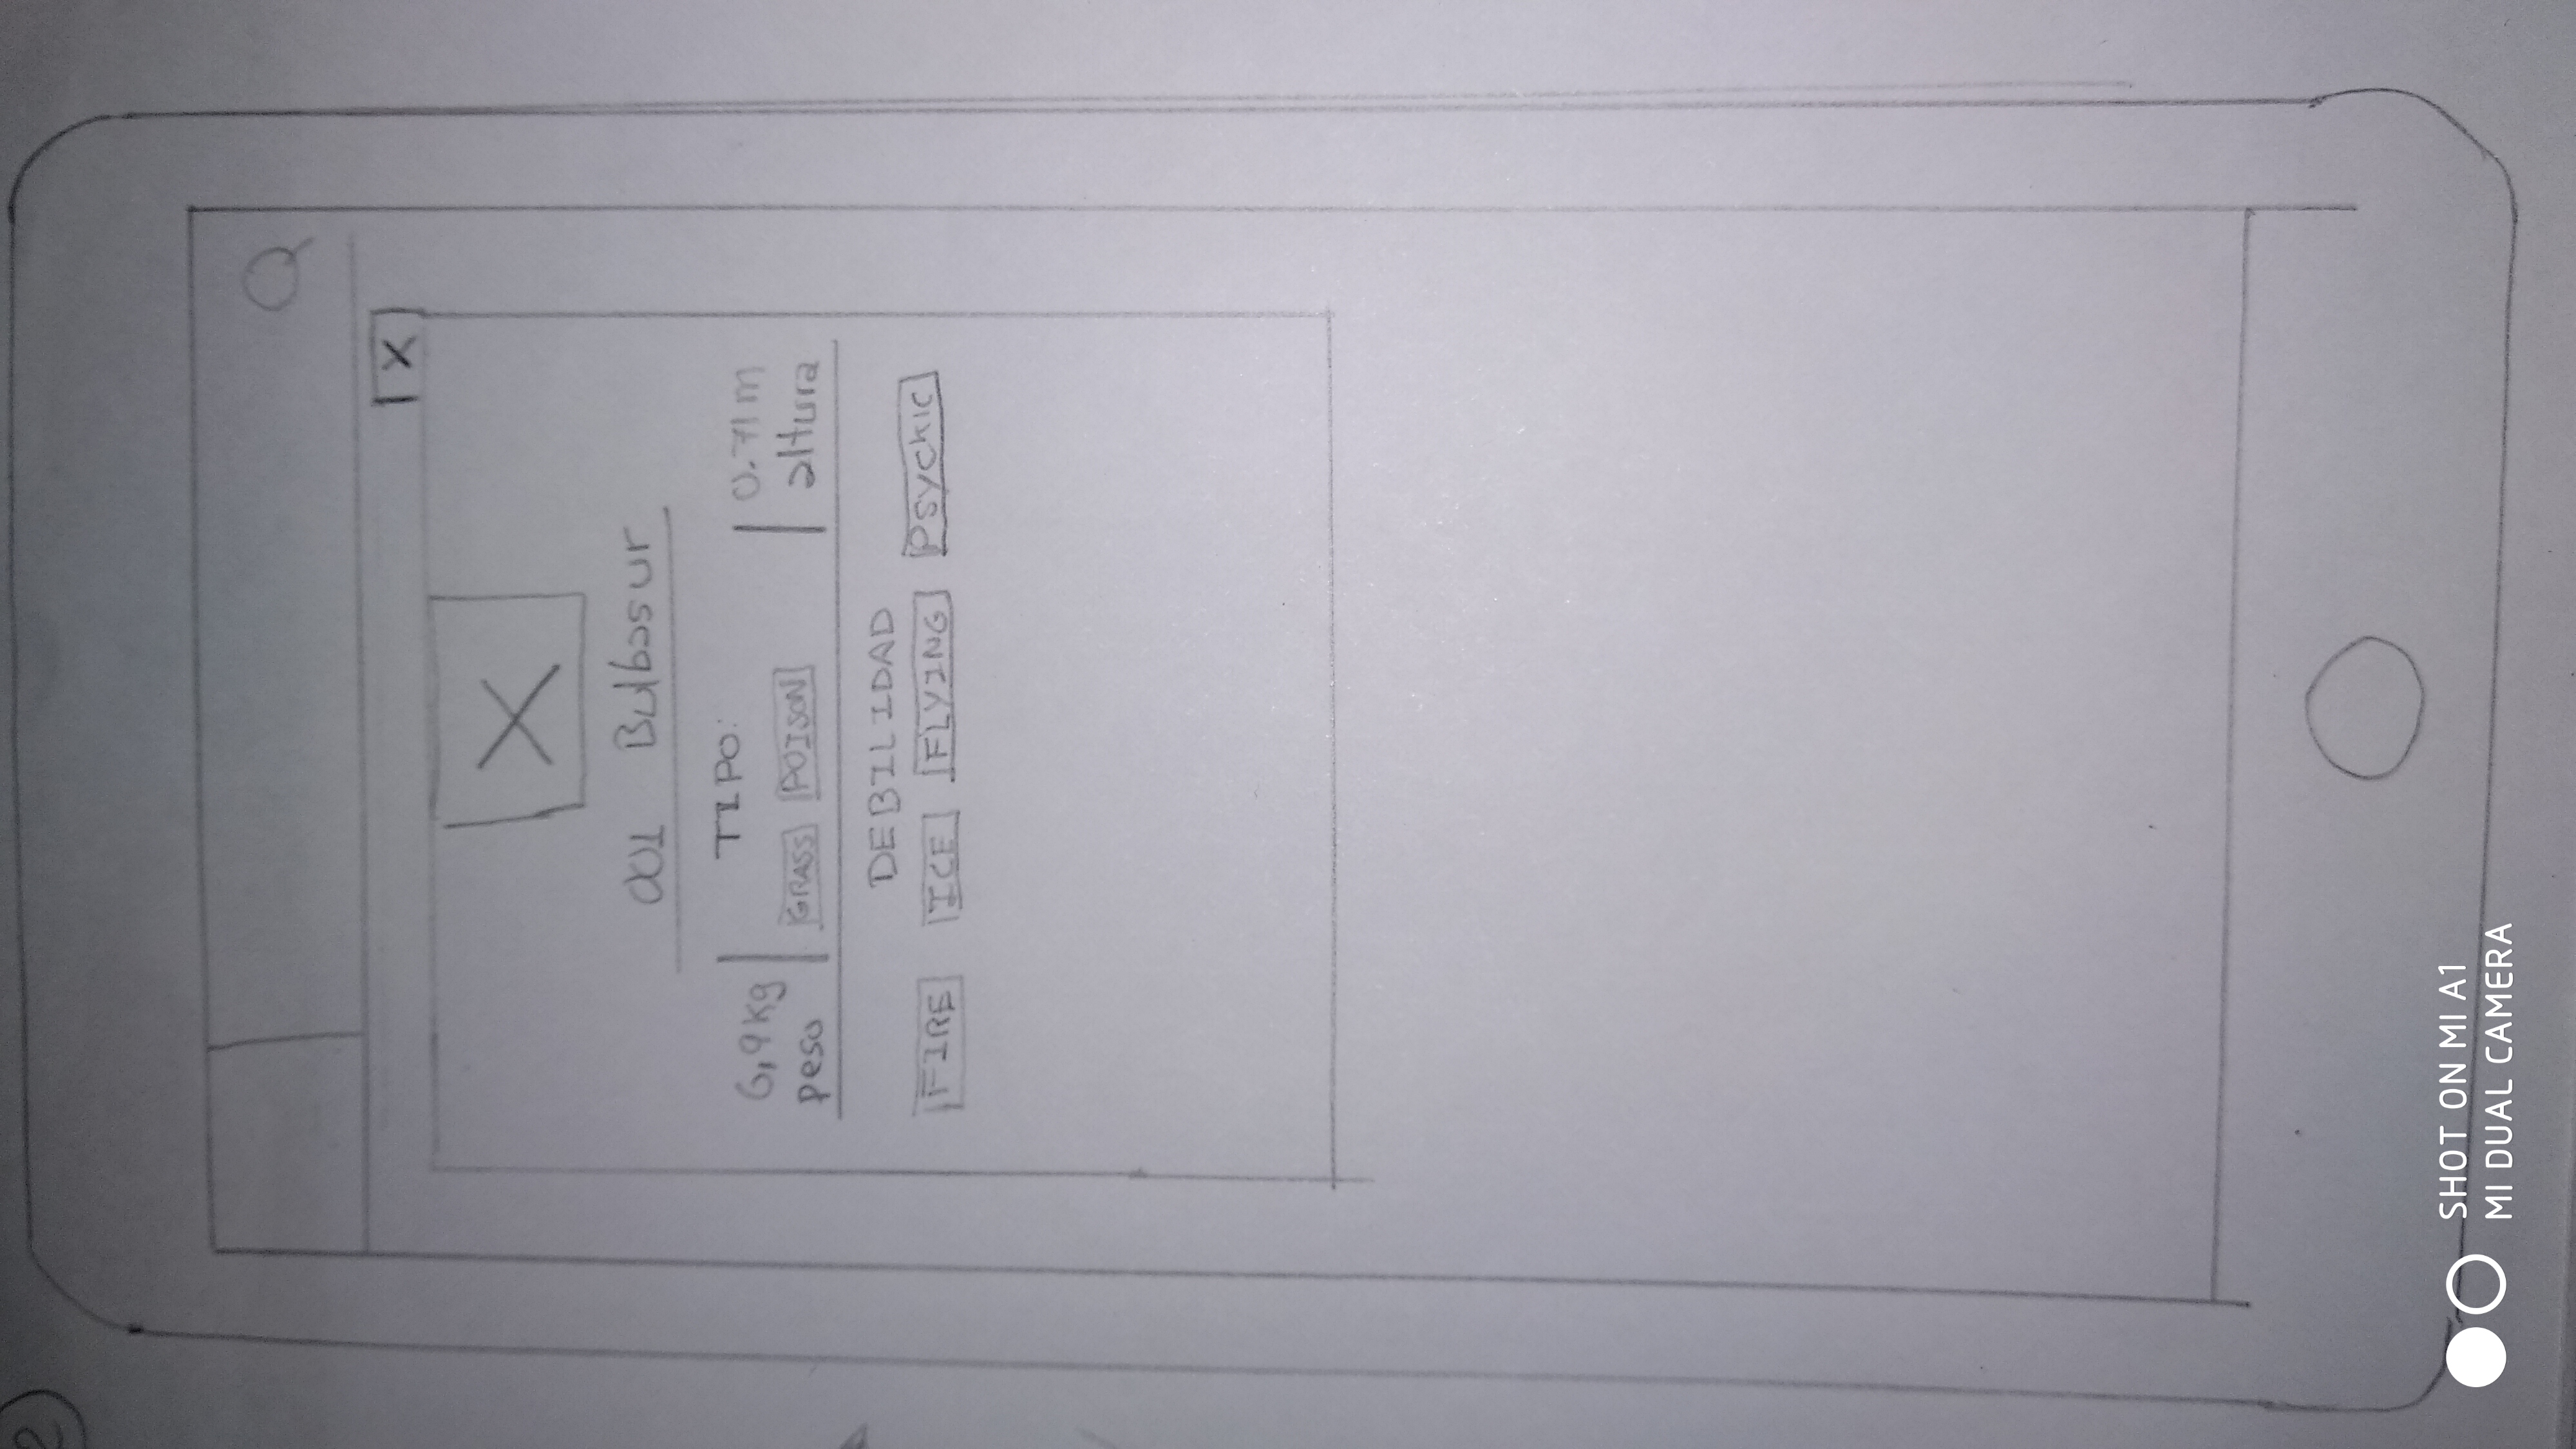 2
X
001 Bulbasur
TIPO:
6,9kg
peso
GRASS POISON
0.71m
altura
DEBILIDAD
FIRE ICE FLYING PSYCKIC
SHOT ON MI A1
MI DUAL CAMERA